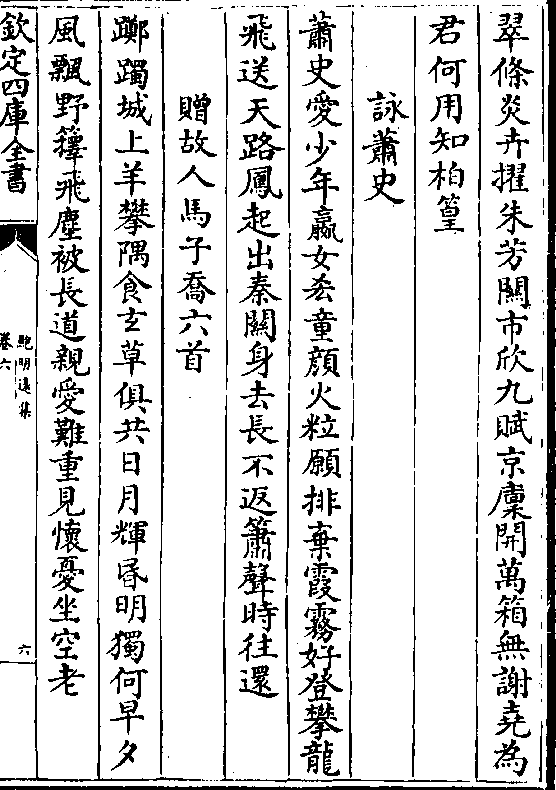 翠條炎卉擢朱芳關市欣九賦京廩開萬箱無謝堯為
君何用知柏篁
詠蕭史
蕭史愛少年嬴女𠫤童顔火粒願排棄霞霧好登攀龍
飛送天路鳳起出秦關身去長不返簫聲時往還
贈故人馬子喬六首
躑躅城上羊攀隅食𤣥草俱共日月輝昬明獨何早夕
風飄野籜飛塵被長道親愛難重見懷憂坐空老
欽定四庫全書
鮑明遠集
卷六
六